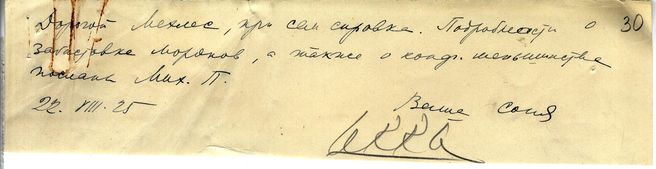 30
Дорогой Мехлес, при сем справка. Подробности о
забастовке моряков, а также о конф. меньшинства
посланы Мих. П.
22. VIII. 25 Ваша Соня
ИККИ